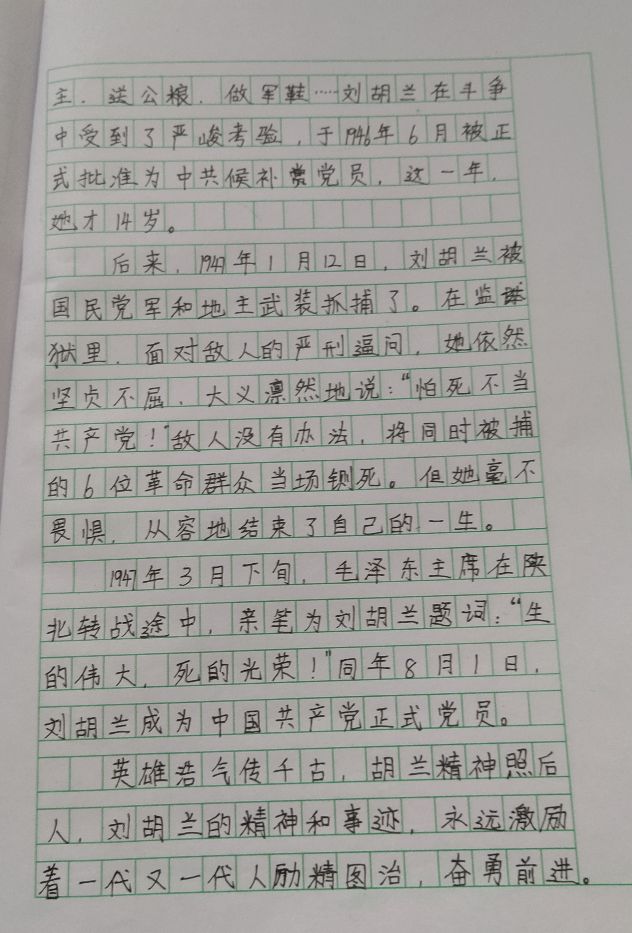 主．送公粮．做军鞋……刘胡兰在斗争
中受到了严峻考验，于1946年6月被正
式批准为中共候补党员，这一年，
她才14岁。
后来，1947年1月12日，刘胡兰被
国民党军和地主武装抓捕了。在监
狱里，面对敌人的严刑逼问，她依然
坚贞不屈，大义凛然地说：“怕死不当
共产党！”敌人没有办法，将同时被捕
的6位革命群众当场铡死。但她毫不
畏惧，从容地结束了自己的一生。
1947年3月下旬，毛泽东主席在陕
北转战途中，亲笔为刘胡兰题词：“生
的伟大，死的光荣！”同年8月1日，
刘胡兰成为中国共产党正式党员。
英雄浩气传千古，胡兰精神照后
人，刘胡兰的精神和事迹，永远激励
着一代又一代人励精图治，奋勇前进。